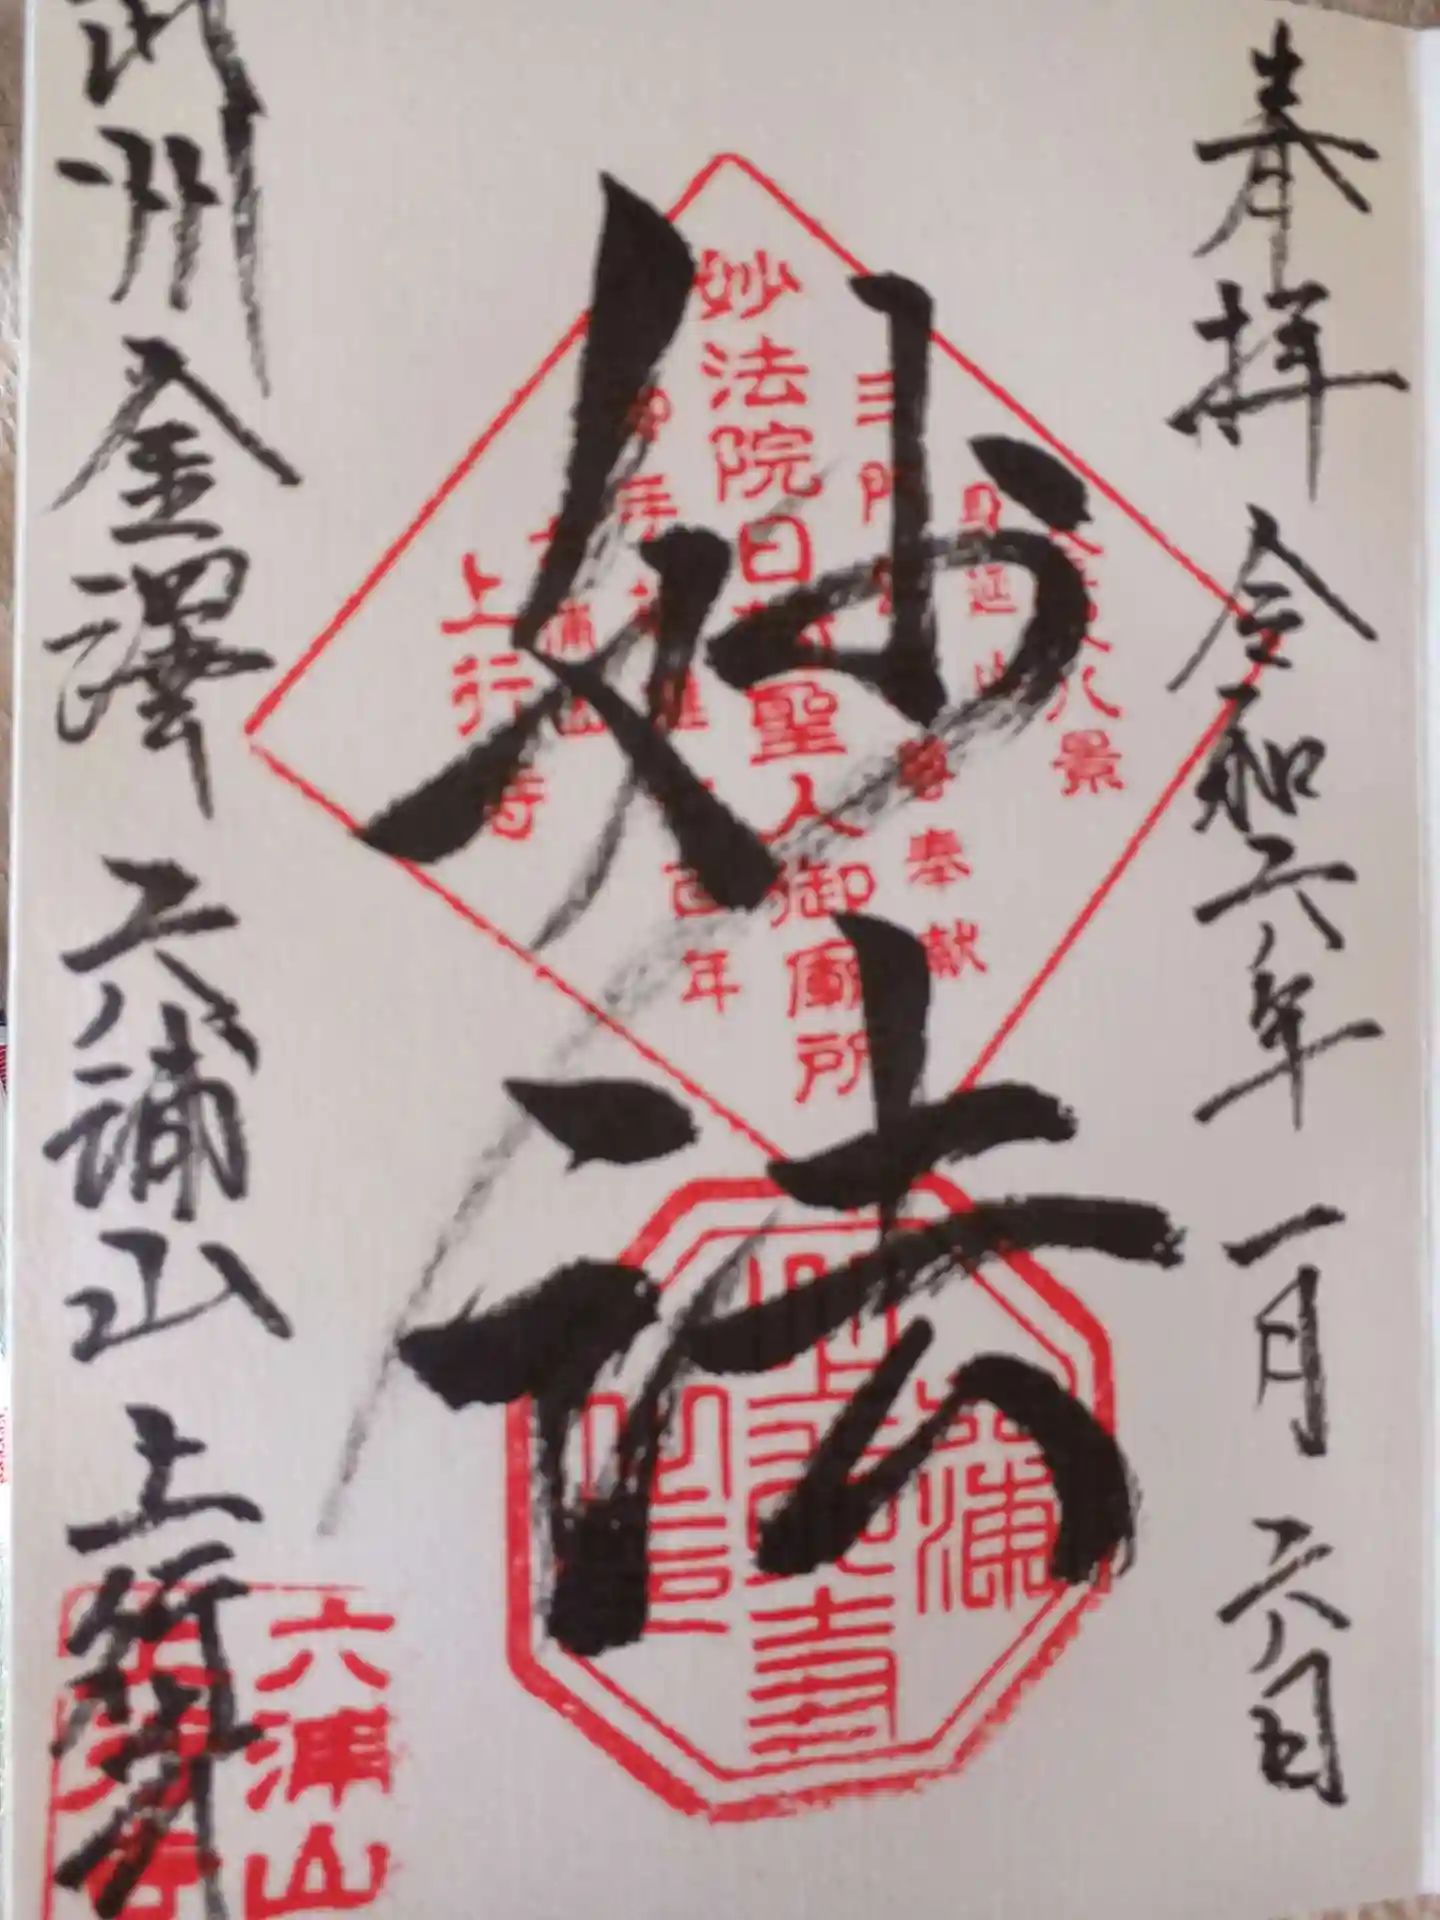 奉拝 令和六年 一月 六日
妙法
武州金澤 六浦山 上行寺
八景
身延山
奉献
三門
妙法院日荷聖人御廟所
百年
六浦山
上行寺
六浦山
上行寺
六浦山
上行寺